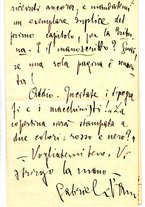 ricordi ancora, e mandatemi
un esemplare duplice del
primo capitolo, per la
E il manoscritto?
se una sola pagina è
Addio. Incitate i tipogra-
fi e i macchinisti. La
copertina sarà stampata a
due colori: rosso e nero?
Vogliatemi bene. Vi
stringo la mano.
Gabriel